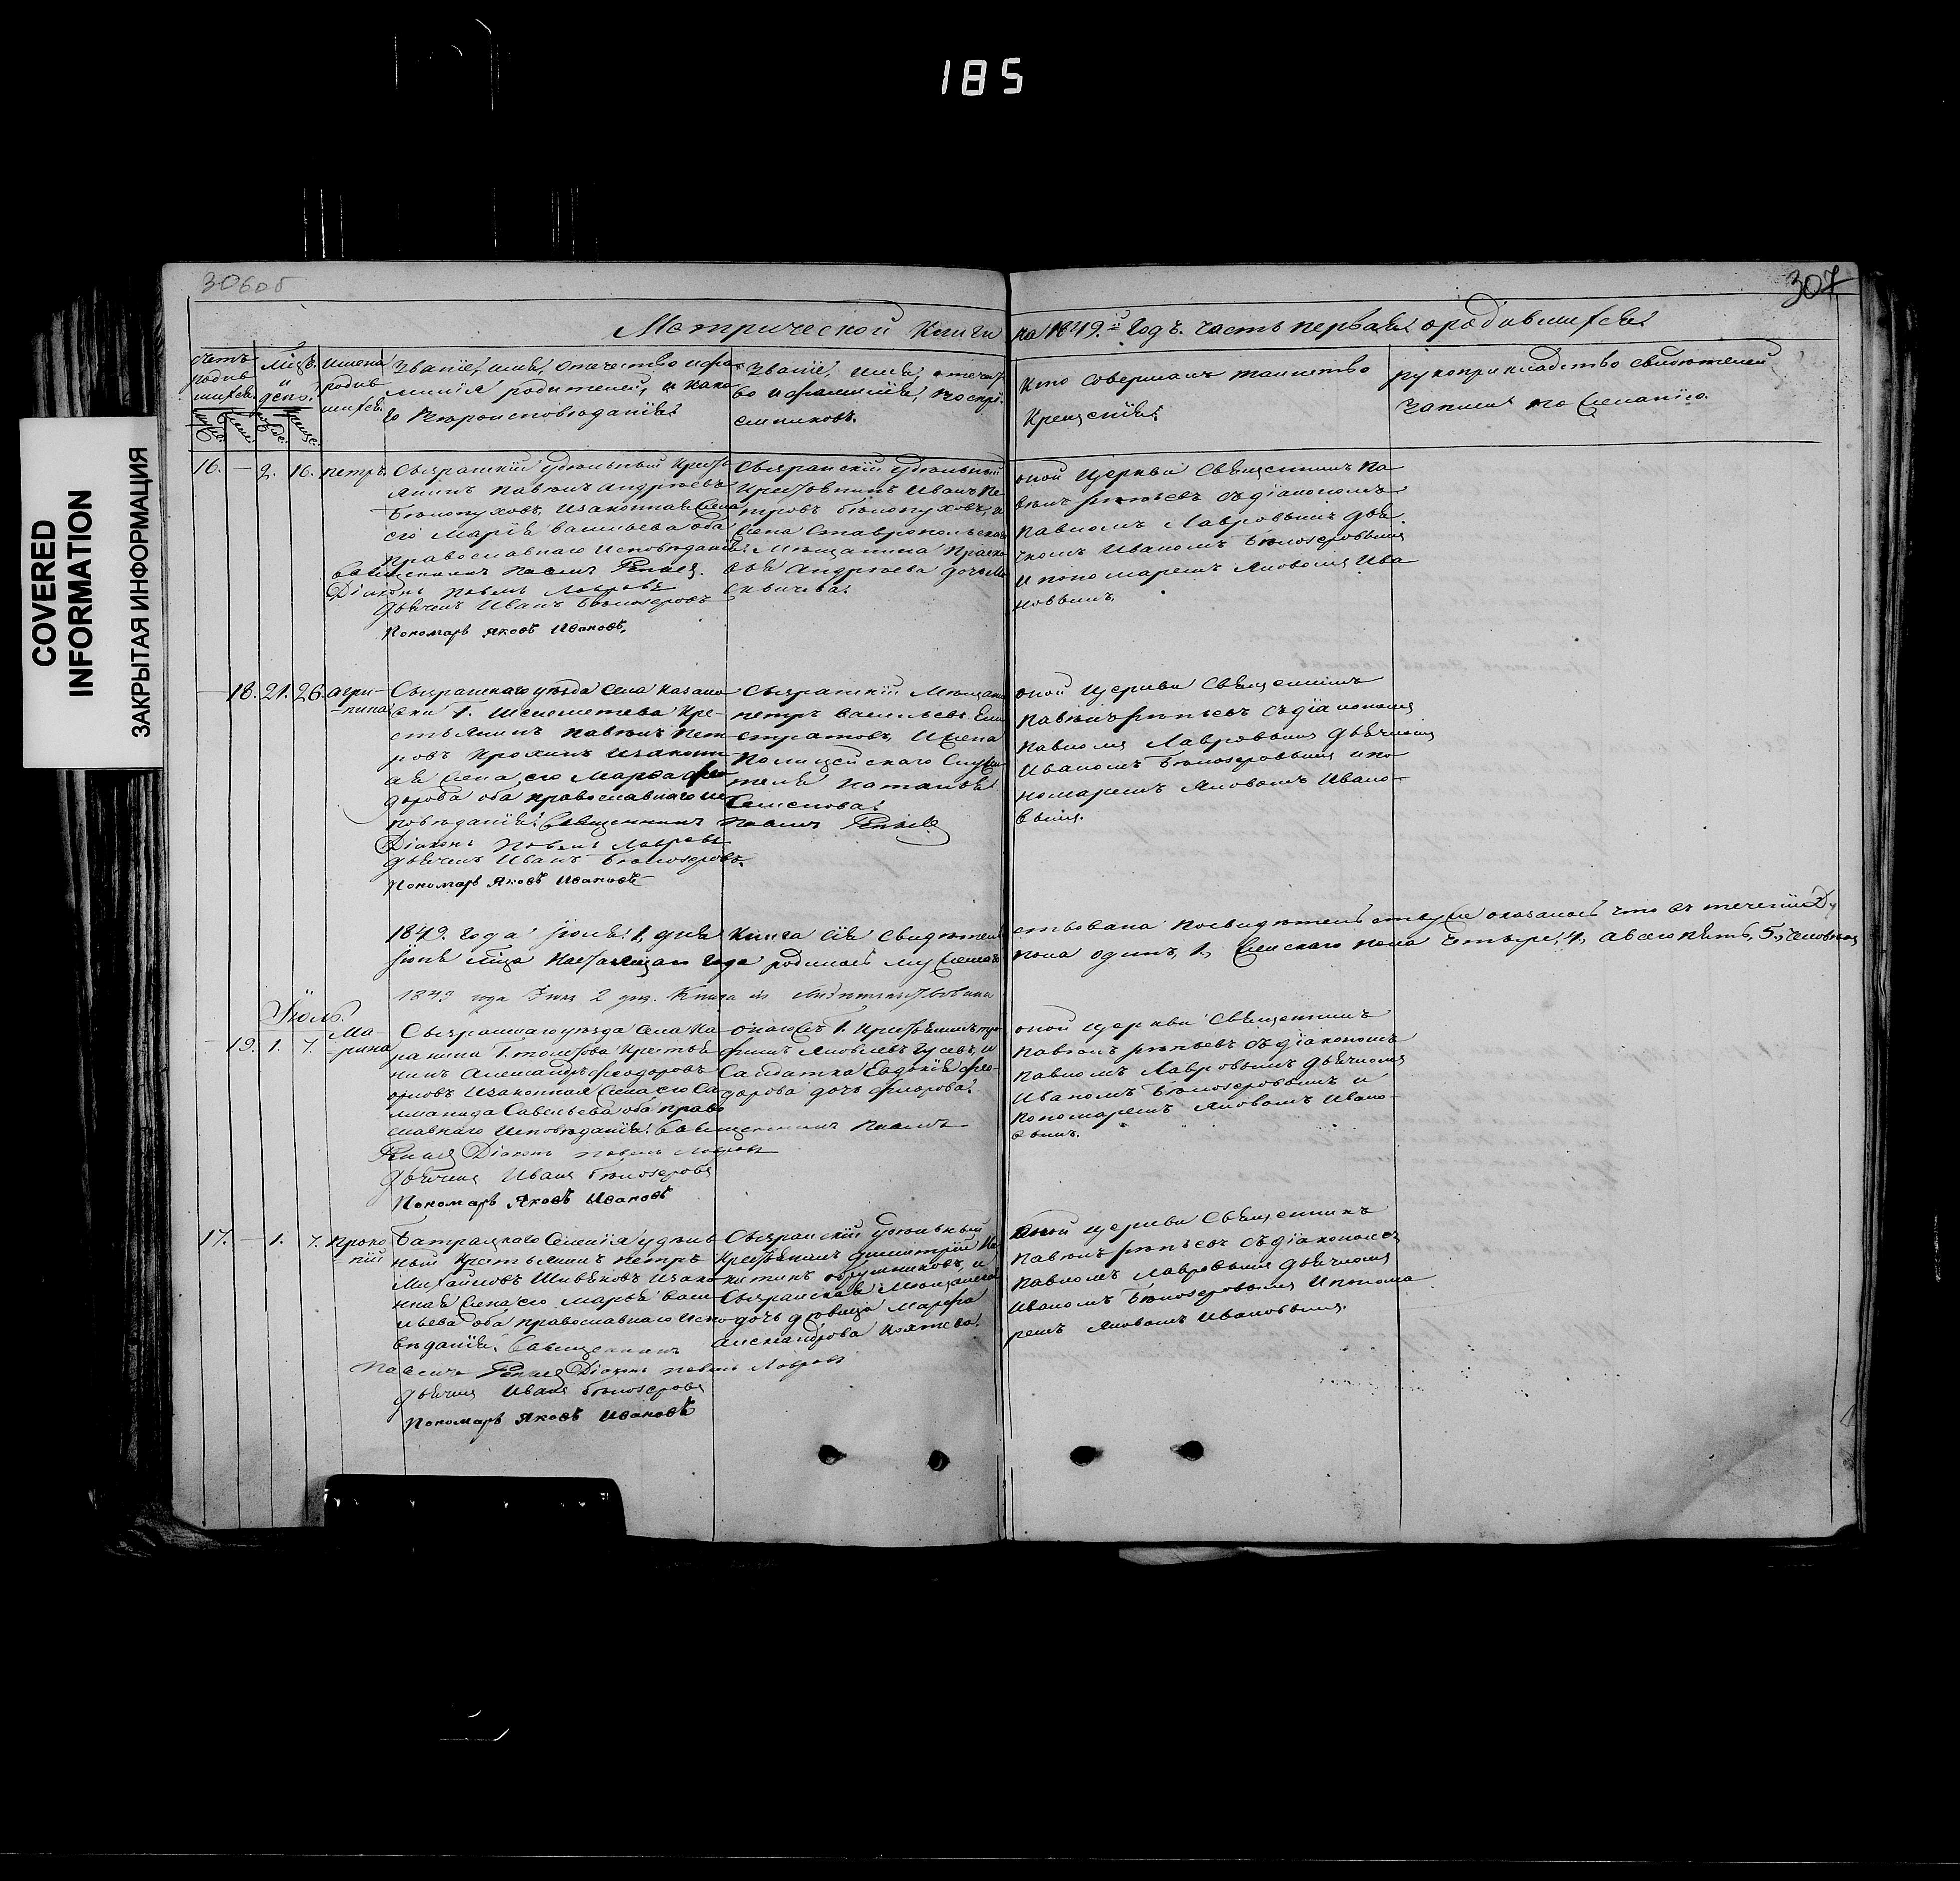 185
COVERED
INFORMATION
ЗАКРЫТАЯ ИНФОРМАЦИЯ
306об
307
Метрической Книги на 1849й Годъ. Часть первая, о родившихся.
Счетъ родившихся
Мцъ. и день.
Имена родившихся
Званiе, имя, отчество и фамилiя родителей, и какого Вѣроисповѣданiя.
Званiе, имя, отечество и фамилiя, воспрiемниковъ.
Кто совершалъ таинство Крещенiя.
рукоприкладство свидѣтелей записи по желанiю.
16. — 2. 16. Петръ.
Сызранскiй удѣльный Кресть
янинъ Павелъ Андрѣевъ
Бѣлопуховъ, и законная жена
его Марiя Васильева оба
православнаго исповѣданiя
Священникъ Павелъ
Дiаконъ Павелъ Лавровъ
Дьячекъ Иванъ Бѣлозеровъ
Пономарь Яковъ Ивановъ.
Сызранскiй удѣльный
Крестьянинъ Иванъ Пе
тровъ Бѣлопуховъ, и
жена Ставропольскаго
Мѣщанина Праско
вья Андрѣева
оной Церкви Священникъ Па
велъ Рѣпьевъ съ дiакономъ
Павломъ Лавровымъ дья
чкомъ Иваномъ Бѣлозеровымъ
и пономаремъ Яковомъ Ива
новымъ.
— 18. 21. 26. Агри-
-пина
Сызранскаго уѣзда села
Г. Кре-
стьянинъ Павелъ Пет
ровъ и законн
ая жена его Марфа Фео
дорова оба православнаго ис
повѣданiя. Священникъ Павелъ
Дiаконъ Павелъ Лавровъ
Дьячекъ Иванъ Бѣлозеровъ.
Пономарь Яковъ Ивановъ
Сызранскiй Мѣщани
Петръ Васильевъ
и жена
Полицейскаго Служи
теля Наталья
Семенова.
оной Церкви Священникъ
Павелъ Рѣпьевъ съ дiакономъ
Павломъ Лавровымъ дьячкомъ
Иваномъ Бѣлозеровымъ и по
номаремъ Яковомъ Ивано-
вымъ.
1849. Года Iюля 1, дня Книга сiя свидѣтель ствована по свидѣтельству же оказалось что въ теченiи
Iюнь мѣца настоящаго Года родилось мужескаго пола одинъ, 1, женскаго пола четыре, 4, а всего пять, 5, человѣкъ
1849 года Iюля 2 дня. Книга сiя свидѣтельствована
Iюль.
— 19. 1. 7. Ма-
-рина
Сызранскаго уѣзда села Ка
ранина Г. Крестья
нинъ Александръ Феодоровъ
и законная жена его Са
Савельева оба право
славнаго исповѣданiя. Священникъ Павелъ
Дiаконъ Павелъ Лавровъ
Дьячекъ Иванъ Бѣлозеровъ
Пономарь Яковъ Ивановъ
Г. Крестьянинъ Тро
фимъ Яковлевъ Гусевъ, и
Салдатка Евдокiя Фео-
дорова дочь
оной Церкви Священникъ
Павелъ Рѣпьевъ съ дiакономъ
Павломъ Лавровымъ дьячкомъ
Иваномъ Бѣлозеровымъ и
пономаремъ Яковомъ Ивано-
вымъ.
17. — 1. 7. Проко
-пiй
Батрацкаго Селенiя удѣль
ный Крестьянинъ Петръ
Михайловъ и зако
нная жена его Марья Васи
льева оба православнаго испо
вѣданiя. Священникъ
Павелъ Дiаконъ Павелъ Лавровъ
Дьячекъ Иванъ Бѣлозеровъ
Пономарь Яковъ Ивановъ
Сызранскiй удѣльный
Крестьянинъ Димитрiй Ни
китинъ и
Сызранская Мѣщанская
дочь дѣвица Марфа
Александрова
оной Церкви Священникъ
Павелъ Рѣпьевъ съ дiакономъ
Павломъ Лавровымъ дьячкомъ
Иваномъ Бѣлозеровымъ и понома
ремъ Яковомъ Ивановымъ.